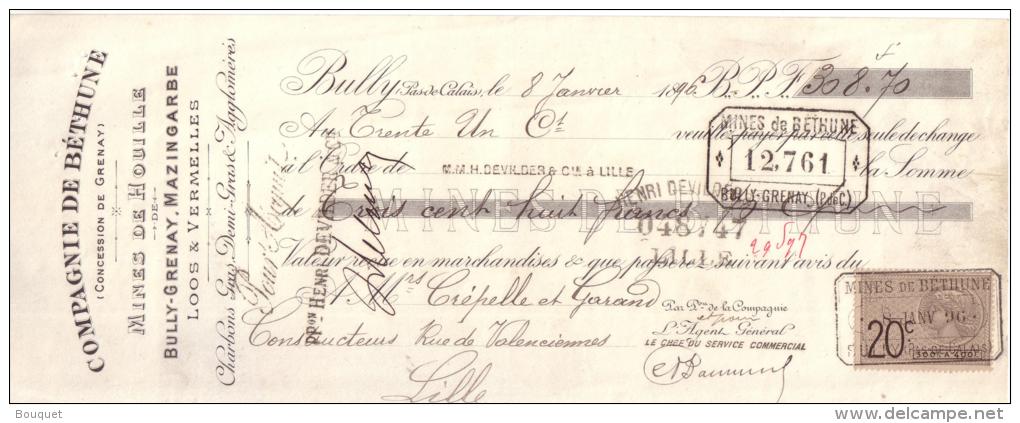 COMPAGNIE DE BÉTHUNE
(CONCESSION DE GRENAY)
MINES DE HOUILLE
DE
BULLY-GRENAY, MAZINGARBE
LOOS & VERMELLES
Charbons Gras, Demi-Gras & Agglomérés
Bully, Pas de Calais, le 8 Janvier 1896 B.P.F. 308.70
Au Trente Un Ct veuillez payer par cette seule de change
à l'Ordre de M.M. H. DEVILDER & Cie à LILLE la Somme
MINES DE BÉTHUNE
de Trois cent huit francs 70
Valeur reçue en marchandises & que passerez suivant avis du
A Mrs Crépelle et Garand
Constructeurs Rue de Valenciennes
Lille
Pour Acquit
Ppon HENRI DEVILDER & Cie
MINES de BÉTHUNE
12,761
BULLY-GRENAY (P. de C.)
HENRI DEVILDER
048747
LILLE
Par Pon de la Compagnie
L'Agent Général
LE CHEF DU SERVICE COMMERCIAL
MINES DE BETHUNE
8 JANV 96
20c
300F A 400F
PAS-DE-CALAIS
Bouquet
www.delcampe.net